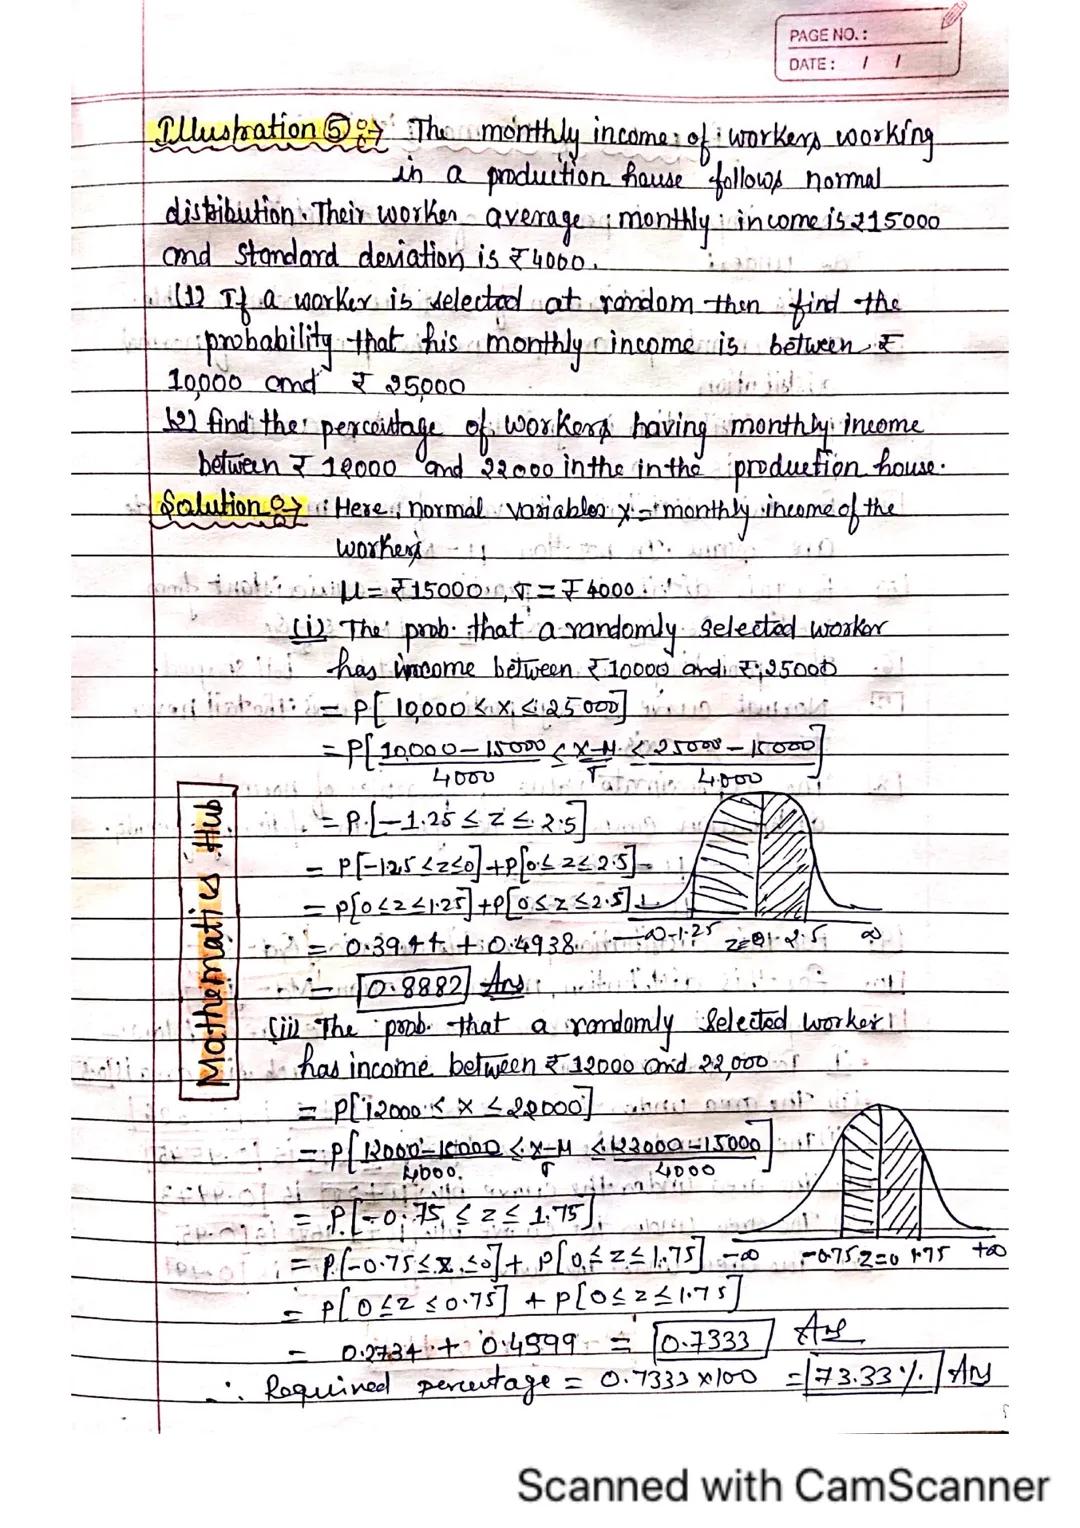 PAGE NO.:
DATE: / /
Illustration ⑤ :→ The monthly income of workers working
in a production house follows normal
distribution. Their worker average monthly income is ₹15000
and standard deviation is ₹4000.
(1) If a worker is selected at random then find the
probability that his monthly income is between ₹
10,000 and ₹ 25,000
(2) find the percentage of workers having monthly income
between ₹ 12000 and 22000 in the in the production house.
Solution :→ Here, normal variables X = monthly income of the
workers
μ = ₹15000, σ = ₹4000
(i) The prob. that a randomly selected worker
has income between ₹10000 and ₹25000
= P[10,000 ≤ X ≤ 25000]
= P[10,000-15000/4000 ≤ X-μ/σ ≤ 25000-15000/4000]
= P[-1.25 ≤ Z ≤ 2.5]
= P[-1.25 ≤ Z ≤ 0] + P[0 ≤ Z ≤ 2.5]
= P[0 ≤ Z ≤ 1.25] + P[0 ≤ Z ≤ 2.5]
-∞ -1.25 Z=0 2.5 ∞
= 0.3944 + 0.4938
= 0.8882 Ans
Mathematics Hub
(ii) The prob. that a randomly selected worker
has income between ₹ 12000 and 22,000
= P[12000 ≤ X ≤ 22000]
= P[12000-15000/4000 ≤ X-μ/σ ≤ 22000-15000/4000]
= P[-0.75 ≤ Z ≤ 1.75]
= P[-0.75 ≤ Z ≤ 0] + P[0 ≤ Z ≤ 1.75]
-∞ -0.75 Z=0 1.75 +∞
= P[0 ≤ Z ≤ 0.75] + P[0 ≤ Z ≤ 1.75]
= 0.2734 + 0.4599 = 0.7333 Ans
∴ Required percentage = 0.7333 x 100 = 73.33% Ans
Scanned with CamScanner